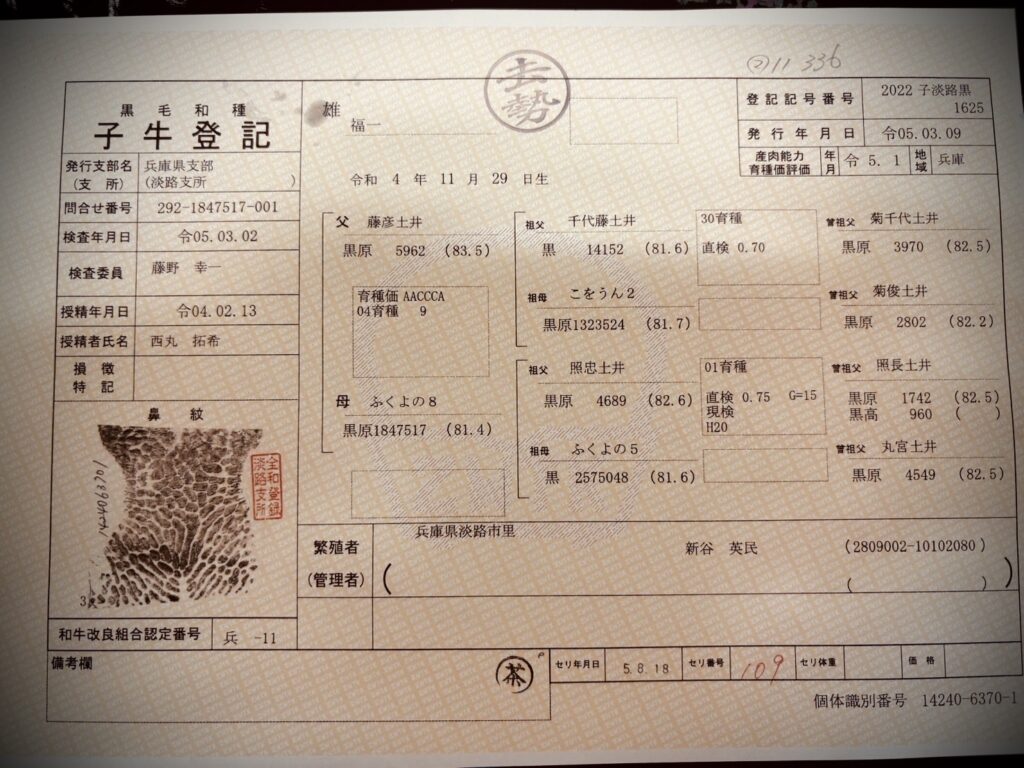 ② 11 336
黒毛和種
子牛登記
雄
福一
去勢
登記記号番号 2022 子淡路黒
1625
発行年月日 令05.03.09
産肉能力
育種価評価 年月 令 5. 1 地域 兵庫
発行支部名 兵庫県支部
(支 所) (淡路支所 )
令和 4 年 11 月 29 日生
問合せ番号 292-1847517-001
検査年月日 令05.03.02
検査委員 藤野 幸一
授精年月日 令04.02.13
授精者氏名 西丸 拓希
損徴
特記
鼻紋
全和登録
淡路支所
父 藤彦土井
黒原 5962 (83.5)
育種価 AACCCA
04育種 9
母 ふくよの8
黒原1847517 (81.4)
祖父 千代藤土井
黒 14152 (81.6)
30育種
直検 0.70
祖母 こをうん2
黒原1323524 (81.7)
祖父 照忠土井
黒原 4689 (82.6)
01育種
直検 0.75 G=15
現検
H20
祖母 ふくよの5
黒 2575048 (81.6)
曽祖父 菊千代土井
黒原 3970 (82.5)
曽祖父 菊俊土井
黒原 2802 (82.2)
曽祖父 照長土井
黒原 1742 (82.5)
黒高 960 ( )
曽祖父 丸宮土井
黒原 4549 (82.5)
兵庫県淡路市里
繁殖者 新谷 英民 (2809002-10102080 )
(管理者) ( ( ) )
和牛改良組合認定番号 兵 -11
備考欄
茶
セリ年月日 5.8.18 セリ番号 109 セリ体重 価格
個体識別番号 14240-6370-1